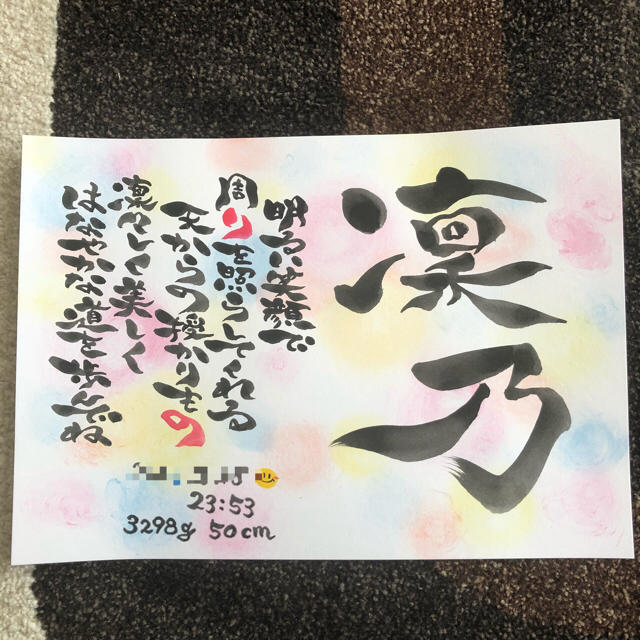 凛乃
明るい笑顔で
周りを照らしてくれる
天からの授かりもの
凛々しく美しく
はなやかな道を歩んでね
23:53
3298g 50cm